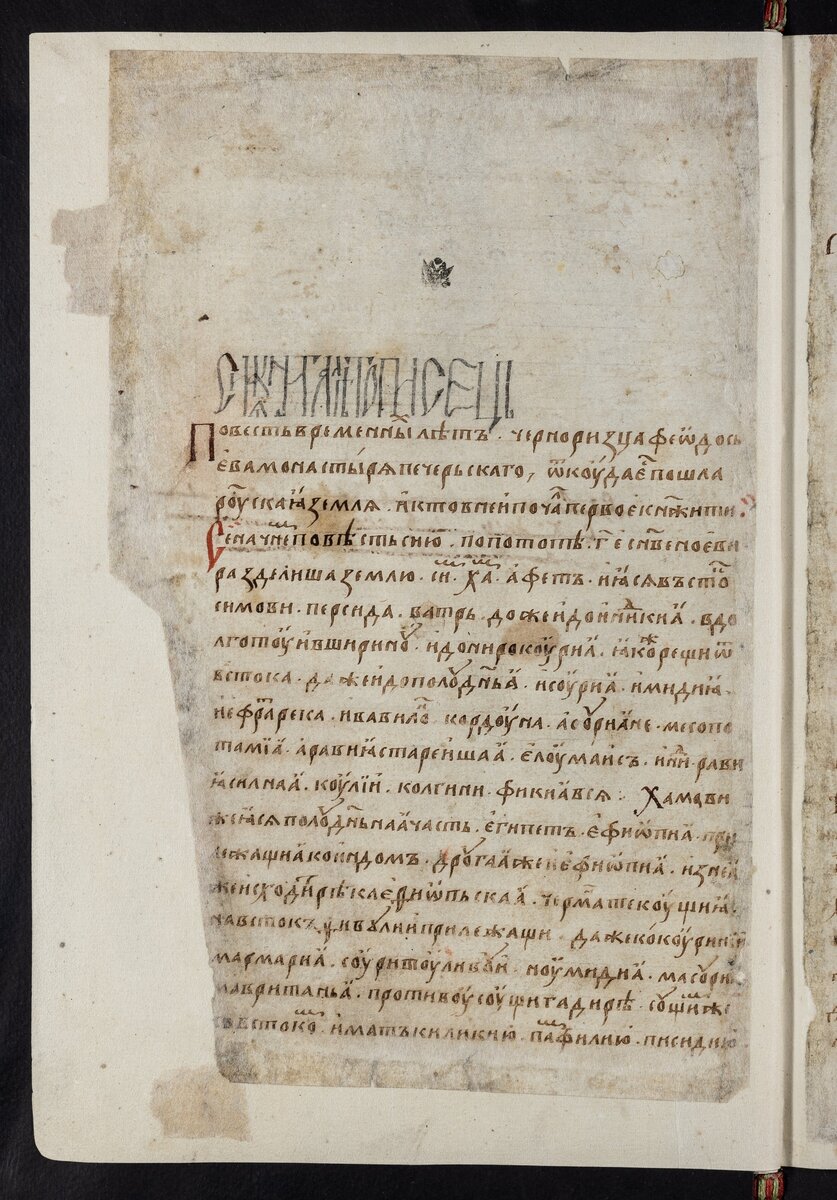 Повесть временны лѣтъ · черноризца феѡдось
ева монастырѧ печерьскаго, ѿкоуда е пошла
роускаꙗ землѧ · и кто в неи поча первое кнѧжити :
Се начне повѣсть сию · по потопѣ · г҃ е снве ноеви
раздѣлиша землю · си · ха · афетъ · иꙗсѧ въсто
симови · персида · ватрь · доже и до индикиа · в до
лготоу и в ширину · и до нирокоуриа · ꙗкоже рещи ѿ
въстока · даже и до полоудньа · и соуриа · и мидиꙗ ·
и ефра река · и вавило · кордоуна · асуриане · месопо
тамїа · аравиꙗ старѣишаа · елоумаисъ · инди · рави
ꙗ силнаа · коулїи · колгини · фикиа всѧ : Хамови
же ꙗсѧ полоудньнаа часть · египетъ · ефиѡпиа · при
лежащиа ко индомъ · другаа же и ефиѡпиа · из неа
же исходи рѣка ефиѡпьскаа · чермна текоущиꙗ ·
на въстокъ · ливуи прилежащи · даже и до коуриниа
мармариа · соурите · ливуи · ноумидиа · масоуриа
мавританьа · противоу соущи гадирѣ · сущи же
къ въстоко · имать киликию · памфилию · писидию